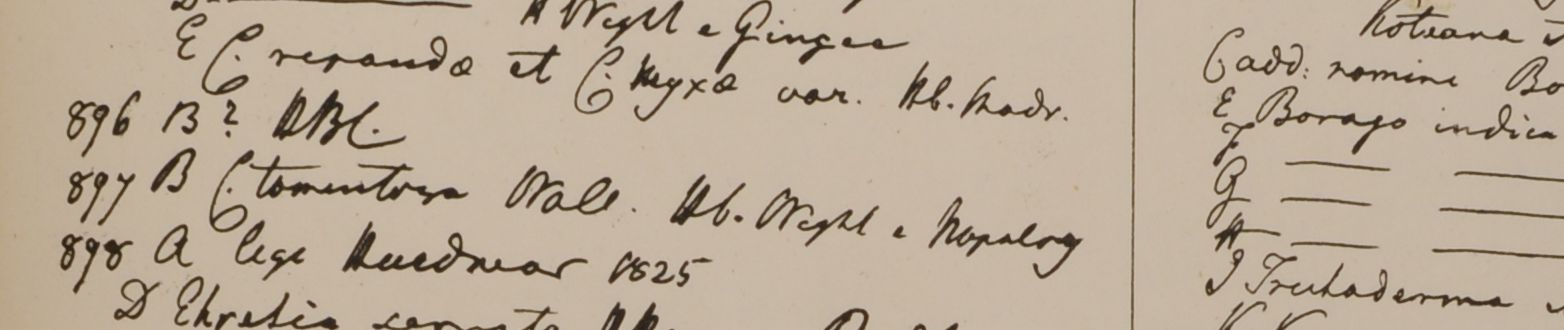 H Wight e Gingee
E C. repandæ et C. Myxæ var. Hb. Madr.
896 B? HBC.
897 B C. tomentosa Wall. Hb. Wight e
898 A lege Hurdwar 1825
D Ehretia serrata
Kotuana
C add: nomini Bo
E Borago indica
F
G
H
J Trichoderma